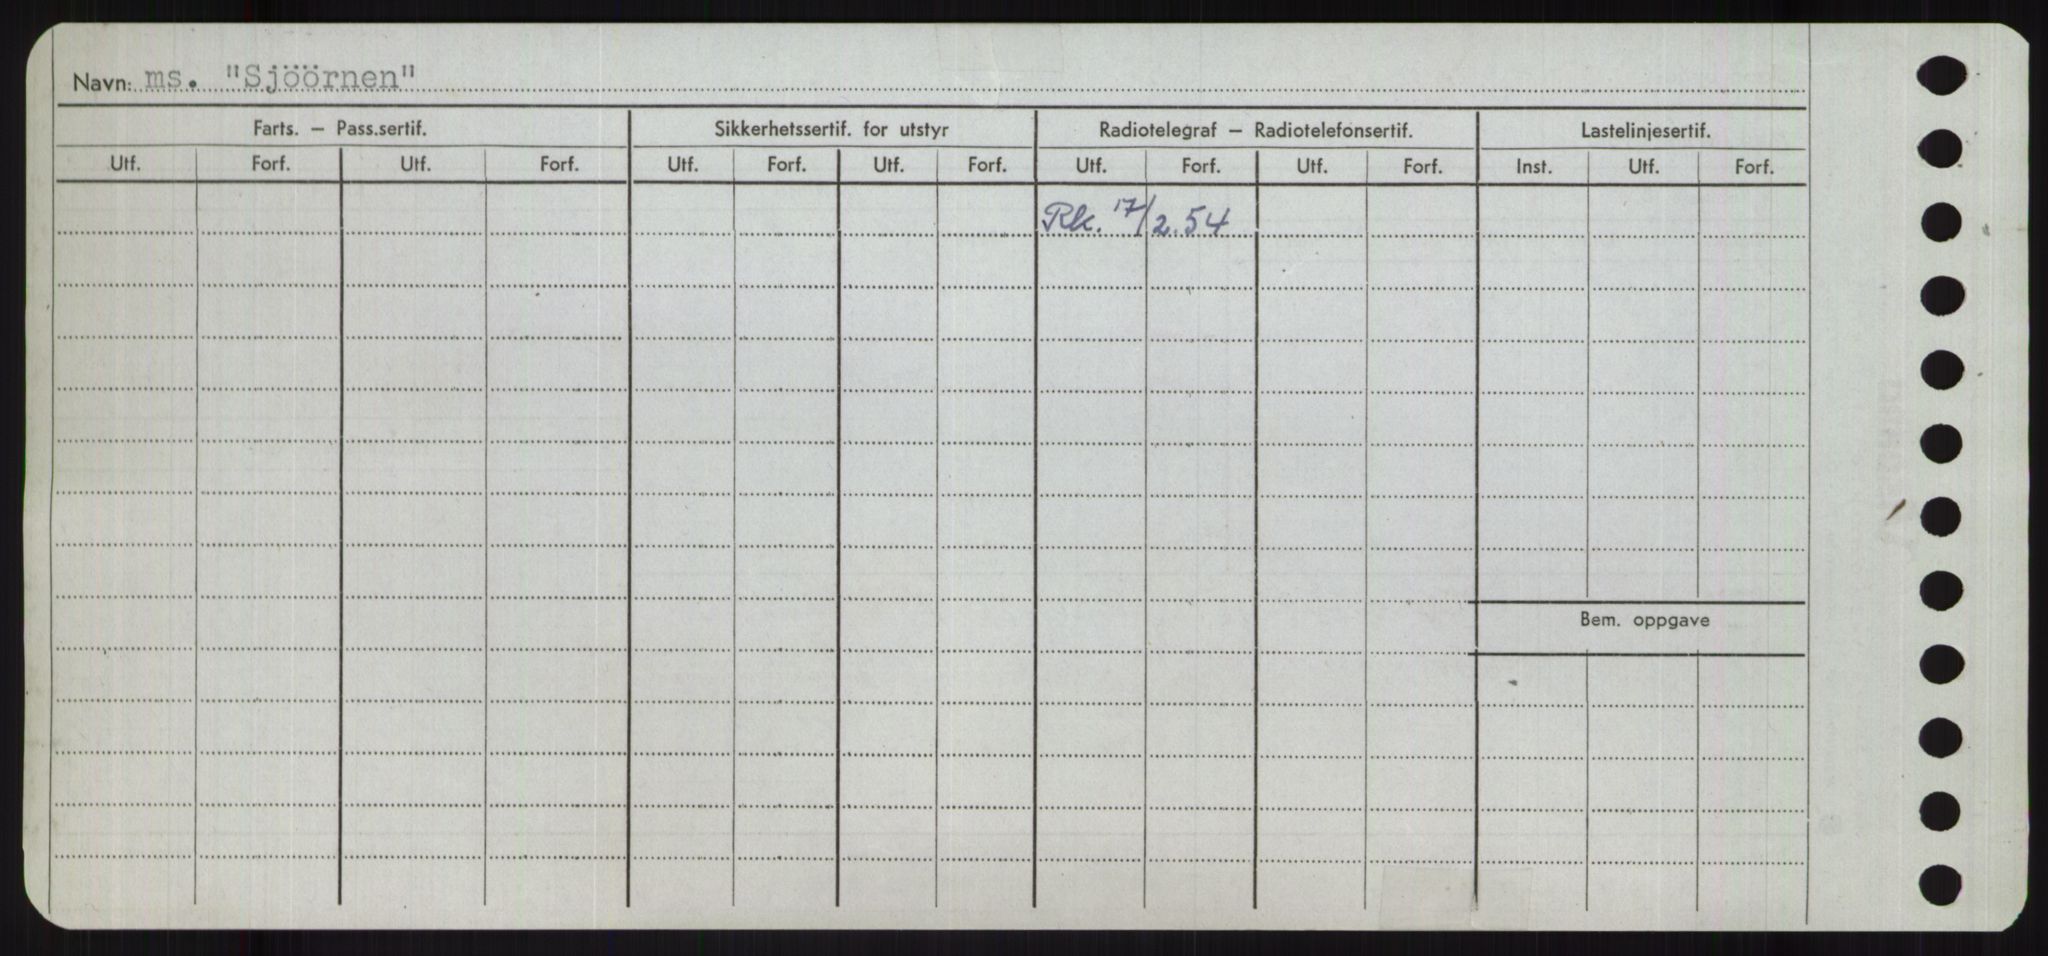 Navn: ms. "Sjöörnen"
Farts. – Pass.sertif. Sikkerhetssertif. for utstyr Radiotelegraf – Radiotelefonsertif. Lastelinjesertif.
Utf. Forf. Utf. Forf. Utf. Forf. Utf. Forf. Utf. Forf. Utf. Forf. Inst. Utf. Forf.
Rk. 17/2.54
Bem. oppgave